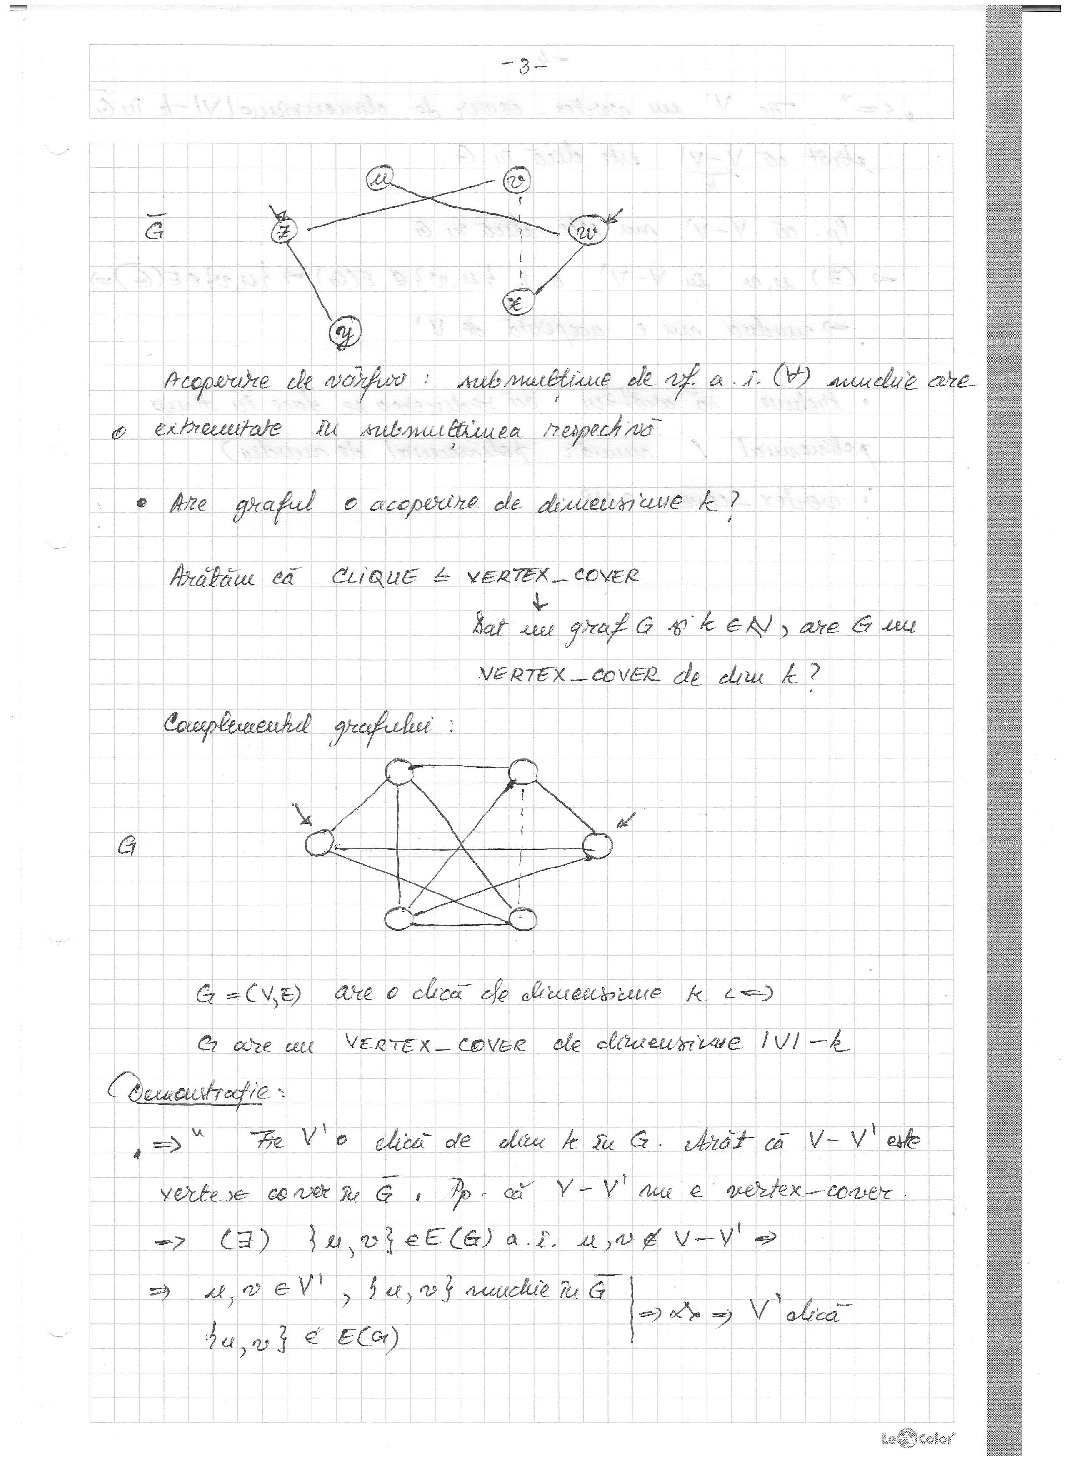 -3-
u v
G̅ z w
x
y
Acoperire de vârfuri : submulţime de vf. a. î. (∀) muchie are
o extremitate în submulţimea respectivă
• Are graful o acoperire de dimensiune k ?
Arătăm că CLIQUE ≤ VERTEX_COVER
↓
Dat un graf G şi k ∈ N, are G un
VERTEX_COVER de dim k ?
Complementul grafului :
G
G = (V,E) are o clică de dimensiune k <=>
G are un VERTEX_COVER de dimensiune |V| - k
Demonstraţie :
„=>" Fie V' o clică de dim k în G. Arăt că V - V' este
vertex cover în G̅. Pp. că V - V' nu e vertex-cover.
=> (∃) {u, v} ∈ E(G) a. î. u, v ∉ V - V' =>
=> u, v ∈ V' , {u, v} muchie în G̅
=> => V' clică
{u, v} ∈ E(G)
Le Color